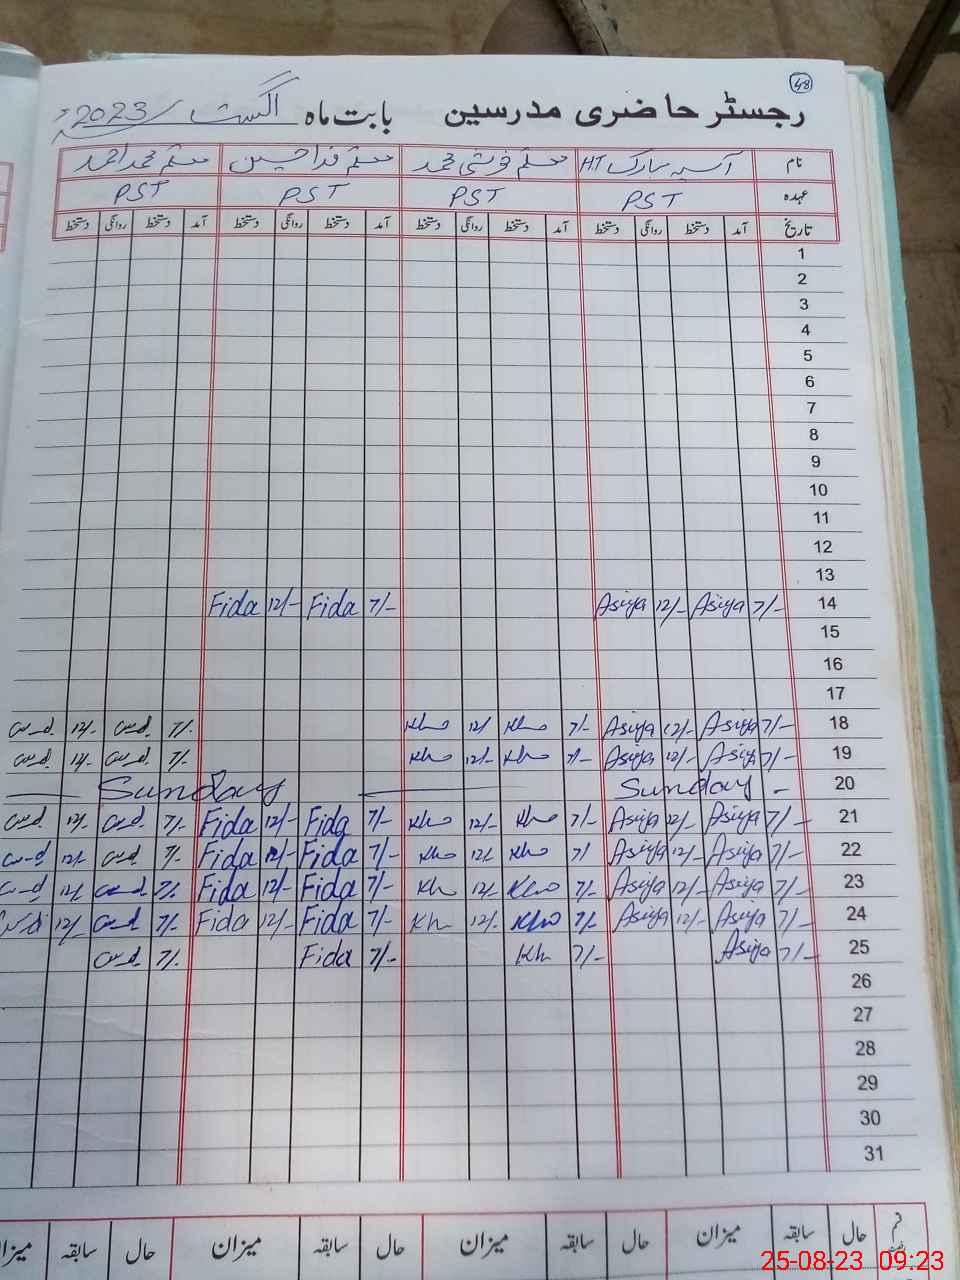 48
رجسٹر حاضری مدرسین بابت ماہ اگست / 2023
نام آسیہ مبارک H.T معلم خوشی محمد معلم فدا حسین معلم محمد احمد
عہدہ PST PST PST PST
تاریخ آمد دستخط روانگی دستخط آمد دستخط روانگی دستخط آمد دستخط روانگی دستخط آمد دستخط روانگی دستخط
1
2
3
4
5
6
7
8
9
10
11
12
13
Fida 12/- Fida 7/- Asiya 12/- Asiya 7/- 14
15
16
17
12/- 7/- Kh 12/- Kh 7/- Asiya 12/- Asiya 7/- 18
12/- 7/- Kh 12/- Kh 7/- Asiya 12/- Asiya 7/- 19
Sunday Sunday 20
12/- 7/- Fida 12/- Fida 7/- Kh 12/- Kh 7/- Asiya 12/- Asiya 7/- 21
12/- 7/- Fida 12/- Fida 7/- Kh 12/- Kh 7/ Asiya 12/- Asiya 7/- 22
12/- 7/- Fida 12/- Fida 7/- Kh 12/- Kh 7/- Asiya 12/- Asiya 7/- 23
12/- 7/- Fida 12/- Fida 7/- Kh 12/- Kh 7/- Asiya 12/- Asiya 7/- 24
7/- Fida 7/- Kh 7/- Asiya 7/- 25
26
27
28
29
30
31
حال سابقہ میزان حال سابقہ میزان حال سابقہ میزان حال سابقہ
25-08-23 09:23